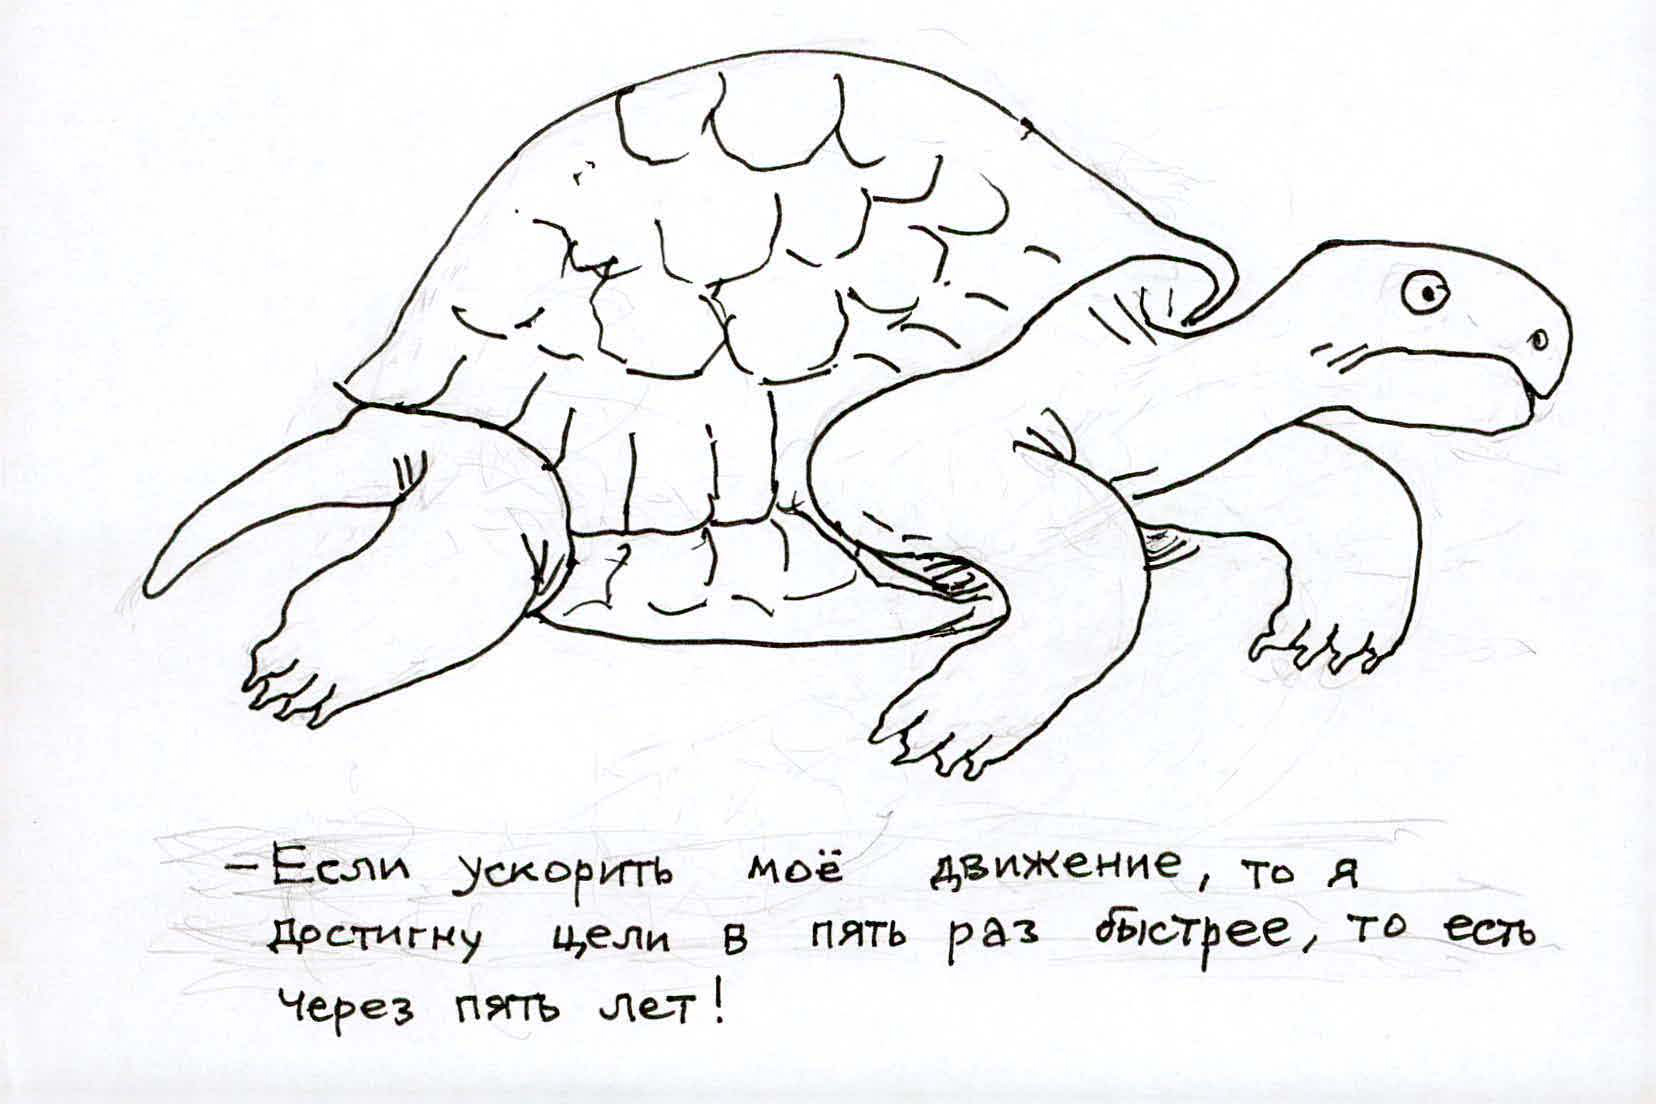 - Если ускорить моё движение, то я
достигну цели в пять раз быстрее, то есть
через пять лет!